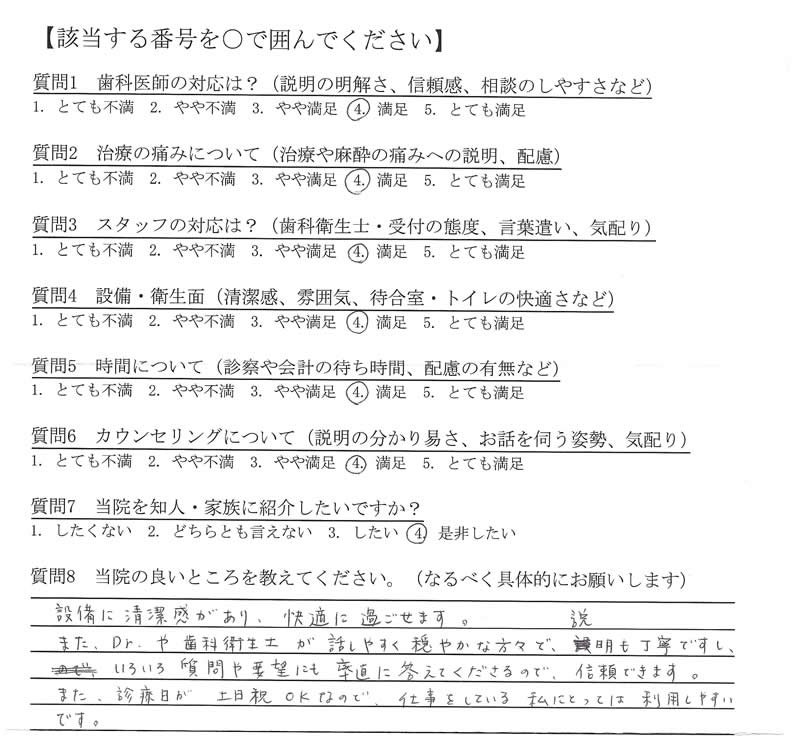 【該当する番号を○で囲んでください】
質問1 歯科医師の対応は？（説明の明解さ、信頼感、相談のしやすさなど）
1. とても不満 2. やや不満 3. やや満足 4. 満足 5. とても満足
質問2 治療の痛みについて（治療や麻酔の痛みへの説明、配慮）
1. とても不満 2. やや不満 3. やや満足 4. 満足 5. とても満足
質問3 スタッフの対応は？（歯科衛生士・受付の態度、言葉遣い、気配り）
1. とても不満 2. やや不満 3. やや満足 4. 満足 5. とても満足
質問4 設備・衛生面（清潔感、雰囲気、待合室・トイレの快適さなど）
1. とても不満 2. やや不満 3. やや満足 4. 満足 5. とても満足
質問5 時間について（診察や会計の待ち時間、配慮の有無など）
1. とても不満 2. やや不満 3. やや満足 4. 満足 5. とても満足
質問6 カウンセリングについて（説明の分かり易さ、お話を伺う姿勢、気配り）
1. とても不満 2. やや不満 3. やや満足 4. 満足 5. とても満足
質問7 当院を知人・家族に紹介したいですか？
1. したくない 2. どちらとも言えない 3. したい 4. 是非したい
質問8 当院の良いところを教えてください。（なるべく具体的にお願いします）
設備に清潔感があり、快適に過ごせます。
また、Dr.や歯科衛生士が話しやすく穏やかな方々で、説明も丁寧ですし、
いろいろ質問や要望にも率直に答えてくださるので、信頼できます。
また、診療日が土日祝OKなので、仕事をしている私にとっては利用しやすい
です。